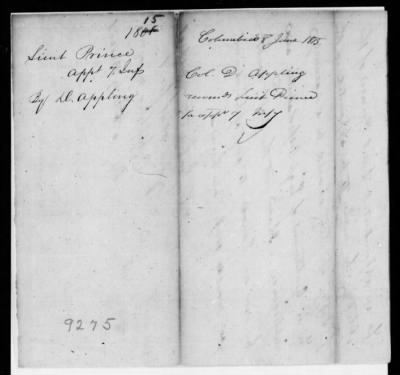 15
180
Lieut Prince
appt 7 Inf
By D. Appling
9275
Columbia 8 June 1815
Col. D. Appling
recomds Lieut Prince
for appt 7 Infy